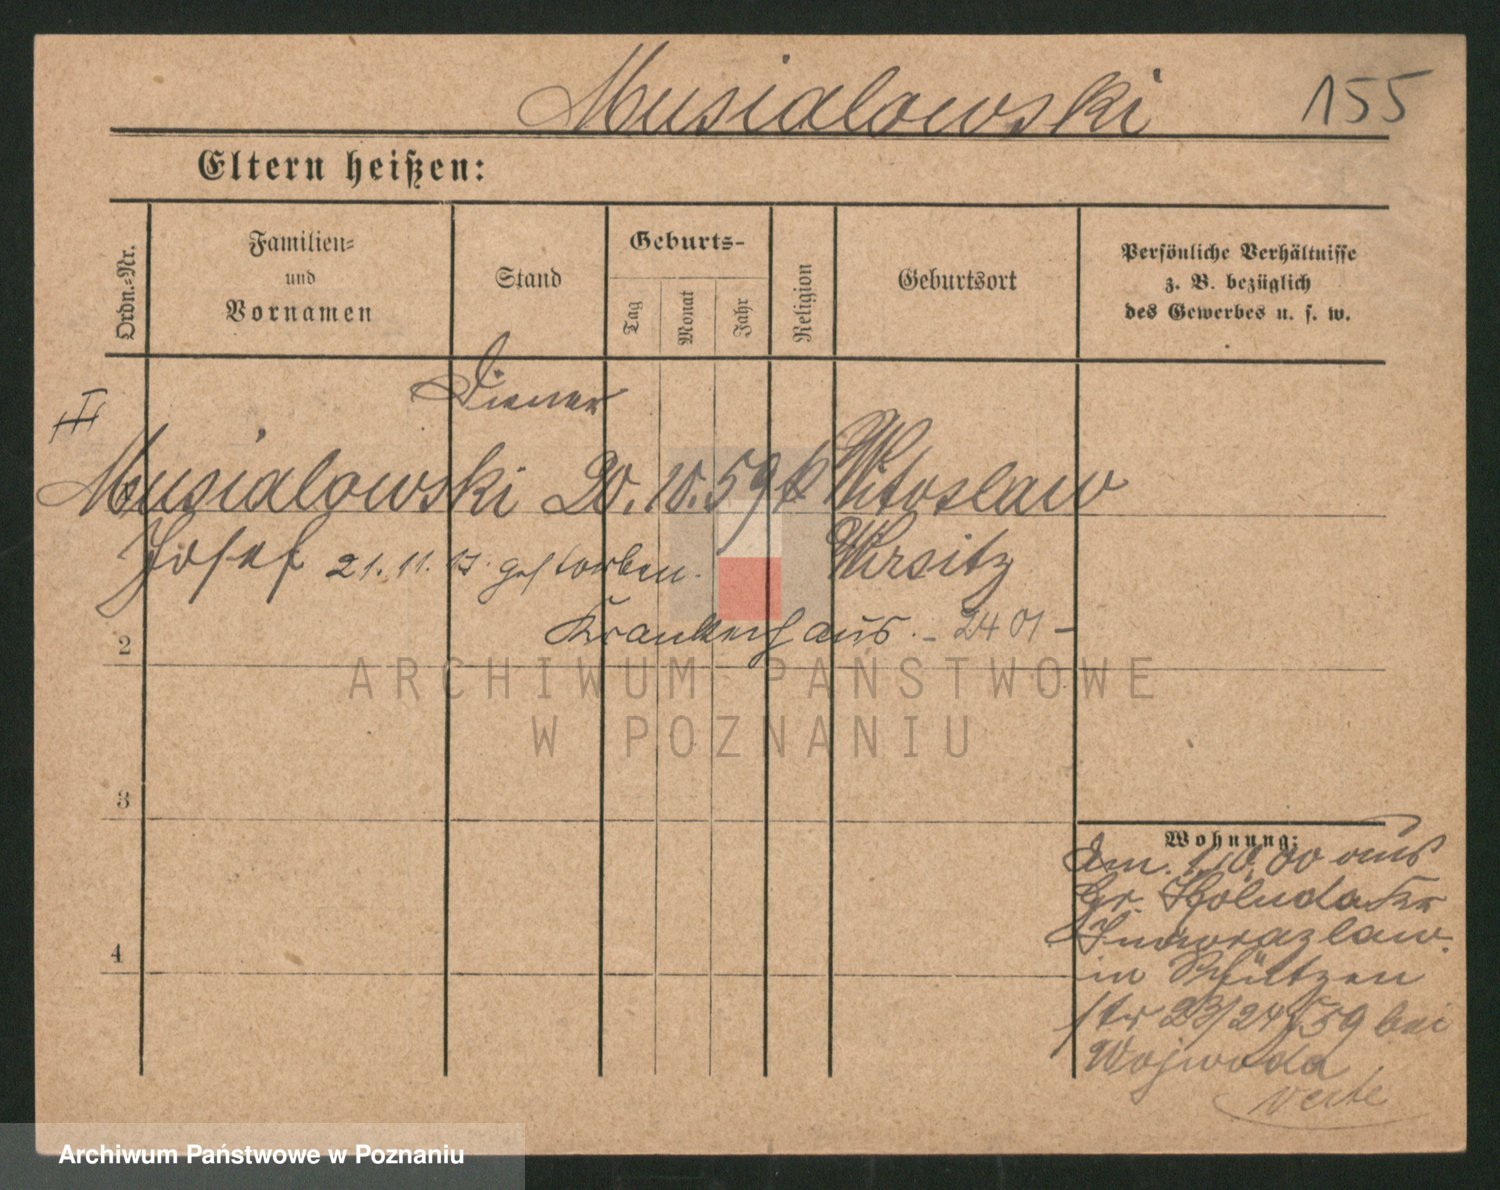 Musialowski 155
Eltern heißen:
Ordn.-Nr.
Familien-
und
Vornamen
Stand
Geburts-
Tag
Monat
Jahr
Religion
Geburtsort
Persönliche Verhältnisse
z. B. bezüglich
des Gewerbes u. s. w.
Diener
Musialowski 20. 10. 59 k Witoslaw
Josef 21. 11. 17. gestorben. Wirsitz
Krankenhaus. - 2401 -
2
3
4
Wohnung:
Am. 1.10.00 aus
Gr.
Inowrazlaw.
in Schützen
str 23/24 bei
Wojwoda
verte
ARCHIWUM PAŃSTWOWE
W POZNANIU
Archiwum Państwowe w Poznaniu